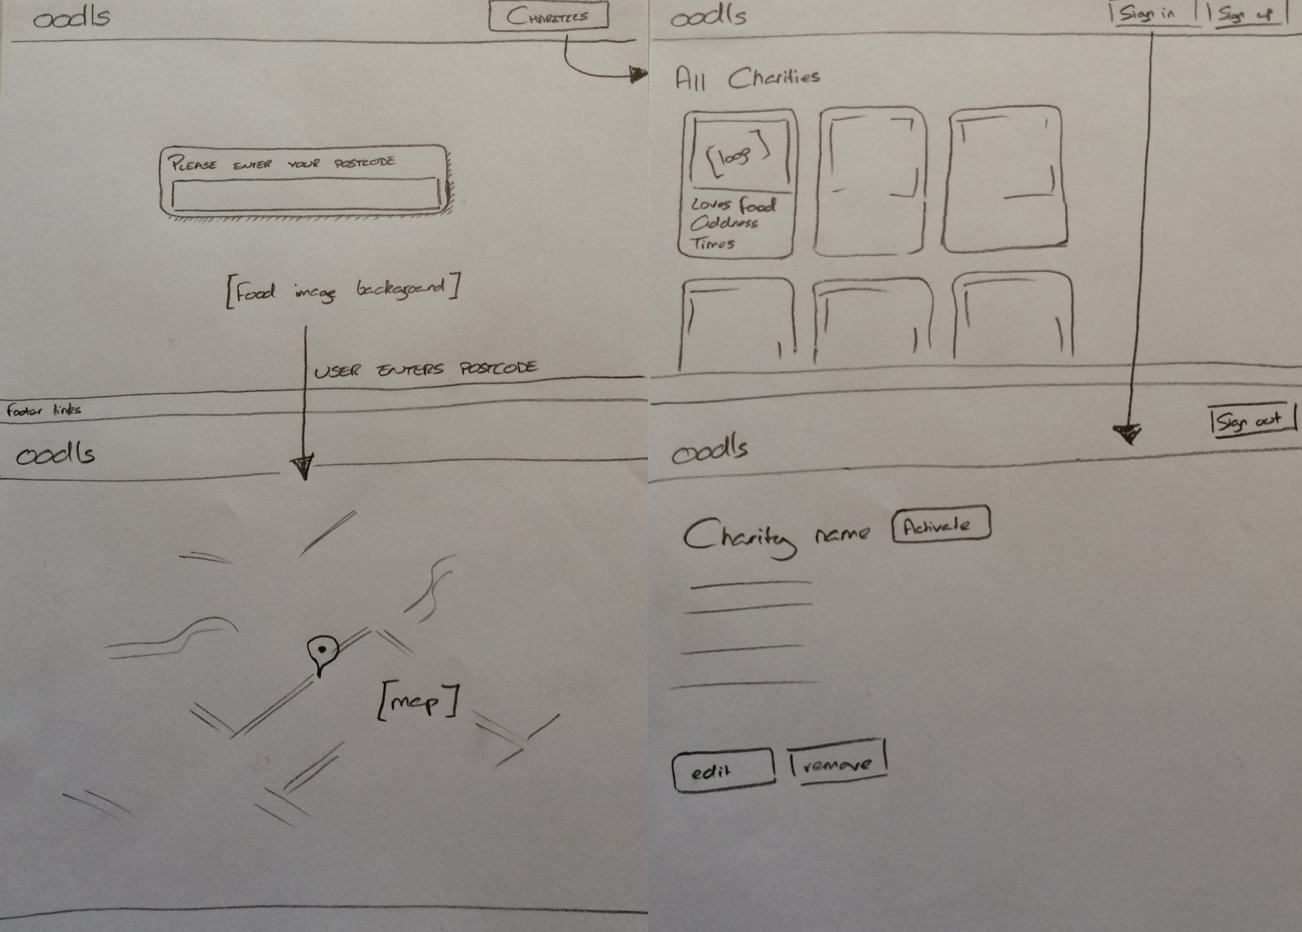 oodls
CHARITIES
PLEASE ENTER YOUR POSTCODE
[Food image background]
USER ENTERS POSTCODE
Footer links
oodls
Sign in
Sign up
All Charities
[logo]
Loves food
Address
Times
oodls
[map]
oodls
Sign out
Charity name
Activate
edit
remove